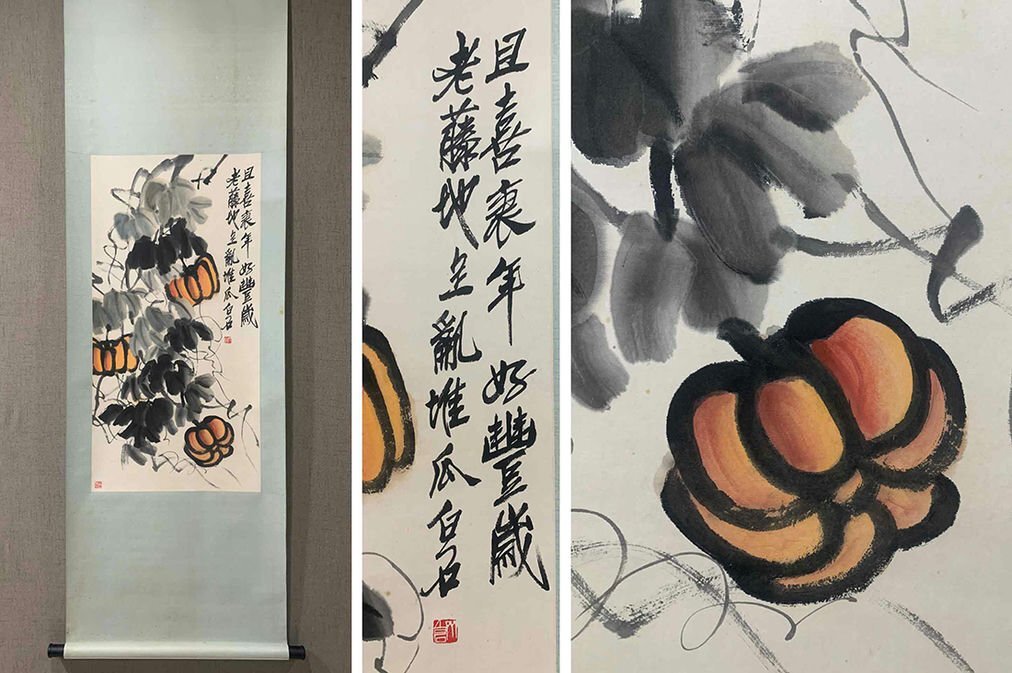 且喜衰年好豐歲
老藤地上亂堆瓜白石
且喜衰年好豐歲
老藤地上亂堆瓜白石